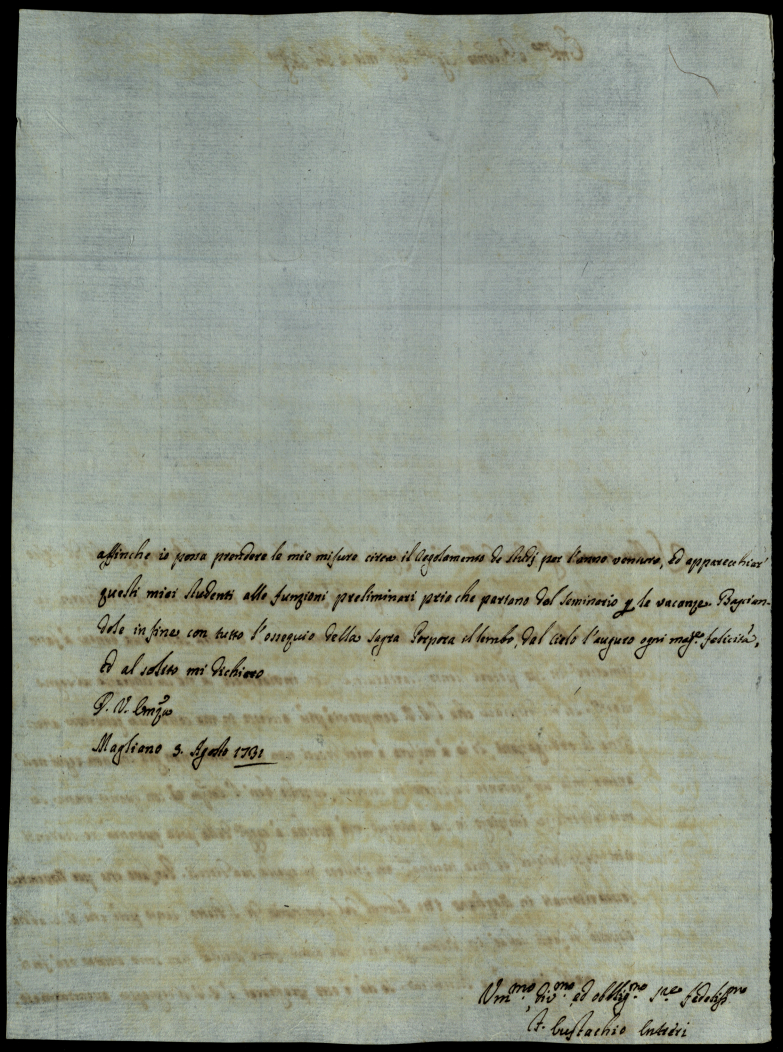 affinche io possa prendere le mie misure circa il Regolamento de Studj per l'anno venturo, ed apparecchiar
questi miei studenti alle funzioni preliminari pria che partano dal seminario p le vacanze. Bacian-
dole in fine con tutto l'ossequio della Sagra Porpora il lembo, dal Cielo l'auguro ogni magre felicità,
Ed al solito mi dichiaro
D. V. Emza
Magliano 3. Agosto 1731
Vmmo, divmo, ed obbligmo Sre fedelissmo
F. Eustachio